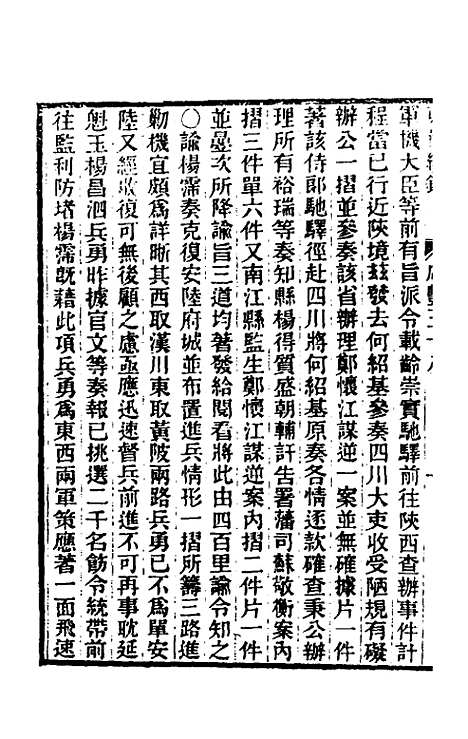 軍機大臣等前有旨派令載齡崇實馳驛前往陝西查辦事件計
程當已行近陝境茲發去何紹基參奏四川大吏收受陋規有礙
辦公一摺並參奏該省辦理鄭懷江謀逆一案並無確據片一件
著該侍郎馳驛徑赴四川將何紹基原奏各情逐款確查秉公辦
理所有裕瑞等奏知縣楊得質盛朝輔訐告署藩司蘇敬衡案內
摺三件單六件又南江縣監生鄭懷江謀逆案內摺二件片一件
並疊次所降諭旨三道均著發給閱看將此由四百里諭令知之
〇諭楊霈奏克復安陸府城並布置進兵情形一摺所籌三路進
勦機宜頗為詳晰其西取漢川東取黃陂兩路兵勇已不為單安
陸又經收復可無後顧之慮亟應迅速督兵前進不可再事耽延
魁玉楊昌泗兵勇昨據官文等奏報已挑選二千名飭令統帶前
往監利防堵楊霈旣藉此項兵勇為東西兩軍策應著一面飛速